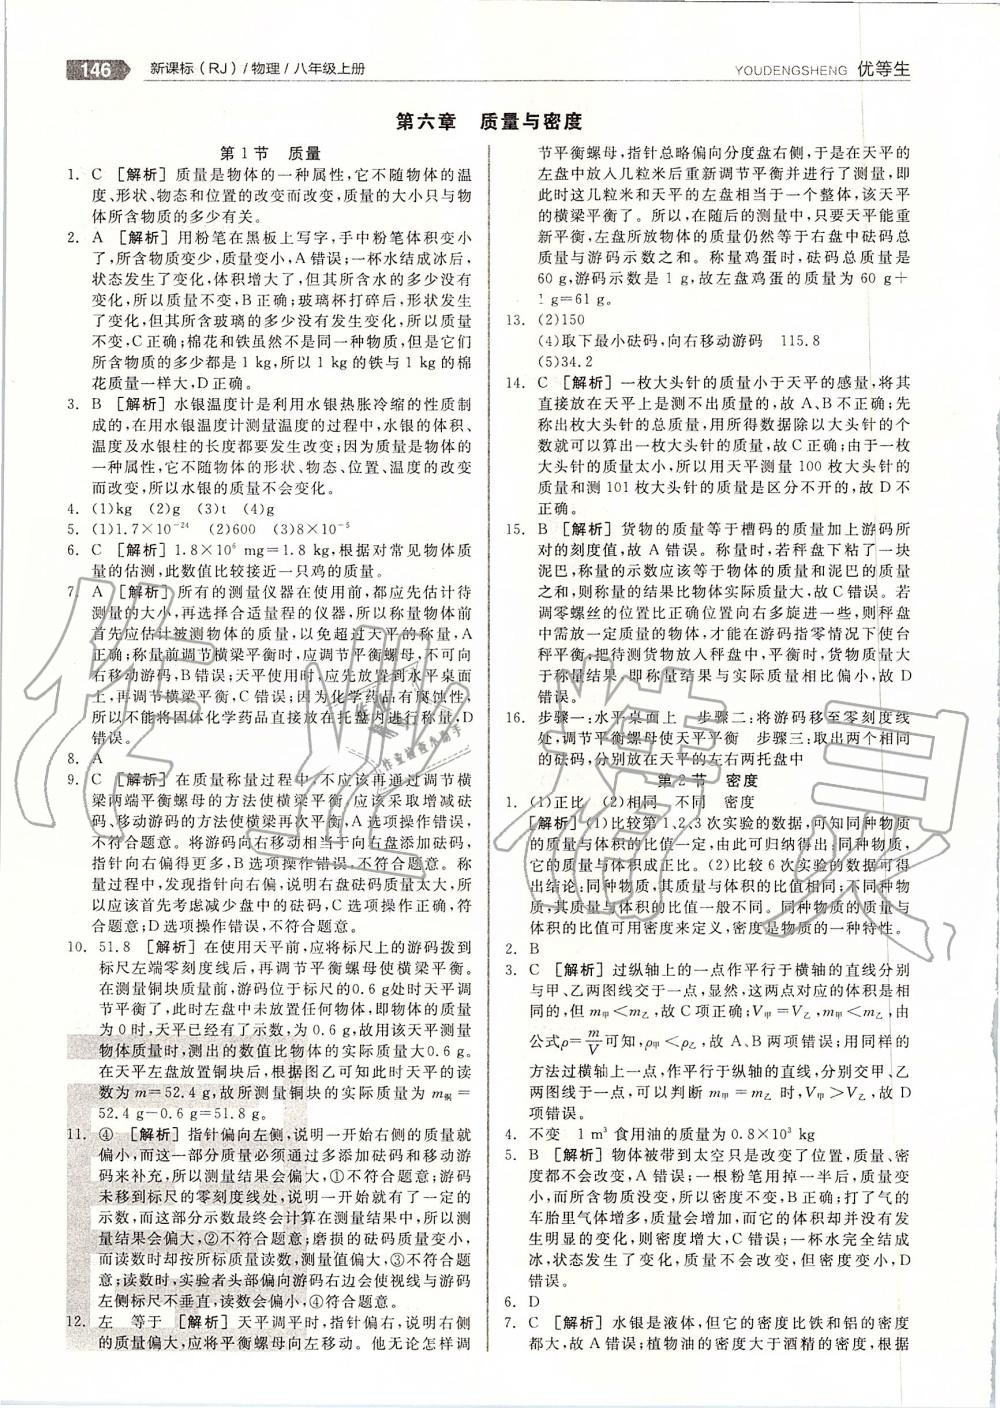 146 新课标(RJ)/物理/八年级上册
YOUDENGSHENG 优等生
第六章 质量与密度
第1节 质量
1. C [解析] 质量是物体的一种属性,它不随物体的温
度、形状、物态和位置的改变而改变,质量的大小只与物
体所含物质的多少有关。
2. A [解析] 用粉笔在黑板上写字,手中粉笔体积变小
了,所含物质变少,质量变小,A错误;一杯水结成冰后,
状态发生了变化,体积增大了,但其所含水的多少没有
变化,所以质量不变,B正确;玻璃杯打碎后,形状发生
了变化,但其所含玻璃的多少没有发生变化,所以质量
不变,C正确;棉花和铁虽然不是同一种物质,但是它们
所含物质的多少都是1 kg,所以1 kg的铁与1 kg的棉
花质量一样大,D正确。
3. B [解析] 水银温度计是利用水银热胀冷缩的性质制
成的,在用水银温度计测量温度的过程中,水银的体积、
温度及水银柱的长度都要发生改变;因为质量是物体的
一种属性,它不随物体的形状、物态、位置、温度的改变
而改变,所以水银的质量不会变化。
4. (1)kg (2)g (3)t (4)g
5. (1)1.7×10⁻²⁴ (2)600 (3)8×10⁻⁵
6. C [解析] 1.8×10⁶ mg=1.8 kg,根据对常见物体质
量的估测,此数值比较接近一只鸡的质量。
7. A [解析] 所有的测量仪器在使用前,都应先估计待
测量的大小,再选择合适量程的仪器,所以称量物体前
首先应估计被测物体的质量,以免超过天平的称量,A
正确;称量前调节横梁平衡时,应调节平衡螺母,不可向
右移动游码,B错误;天平使用时,应先放置到水平桌面
上,再调节横梁平衡,C错误;因为化学药品有腐蚀性,
所以不能将固体化学药品直接放在托盘内进行称量,D
错误。
8. A
9. C [解析] 在质量称量过程中,不应该再通过调节横
梁两端平衡螺母的方法使横梁平衡,应该采取增减砝
码、移动游码的方法使横梁再次平衡,A选项操作错误,
不符合题意。将游码向右移动相当于向右盘添加砝码,
指针向右偏得更多,B选项操作错误,不符合题意。称
量过程中,发现指针向右偏,说明右盘砝码质量太大,所
以应该首先考虑减少盘中的砝码,C选项操作正确,符
合题意;D选项操作错误,不符合题意。
10. 51.8 [解析] 在使用天平前,应将标尺上的游码拨到
标尺左端零刻度线后,再调节平衡螺母使横梁平衡。
在测量铜块质量前,游码位于标尺的0.6 g处时天平调
节平衡了,此时左盘中未放置任何物体,即物体的质量
为0时,天平已经有了示数,为0.6 g,故用该天平测量
物体质量时,测出的数值比物体的实际质量大0.6 g。
在天平左盘放置铜块后,根据图乙可知此时天平的读
数为m=52.4 g,故所测量铜块的实际质量为m铜=
52.4 g-0.6 g=51.8 g。
11. ④ [解析] 指针偏向左侧,说明一开始右侧的质量就
偏小,而这一部分质量必须通过多添加砝码和移动游
码来补充,所以测量结果会偏大,①不符合题意;游码
未移到标尺的零刻度线处,说明一开始就有了一定的
示数,而这部分示数最终会计算在测量结果中,所以测
量结果会偏大,②不符合题意;磨损的砝码质量变小,
而读数时却按所标质量读数,测量值偏大,③不符合题
意;读数时,实验者头部偏向游码右边会使视线与游码
左侧标尺不垂直,读数会偏小,④符合题意。
12. 左 等于 [解析] 天平调平时,指针偏右,说明右侧
的质量偏大,应将平衡螺母向左移动。他无论怎样调
节平衡螺母,指针总略偏向分度盘右侧,于是在天平的
左盘中放入几粒米后重新调节平衡并进行了测量,即
此时这几粒米和天平的左盘相当于一个整体,该天平
的横梁平衡了。所以,在随后的测量中,只要天平能重
新平衡,左盘所放物体的质量仍然等于右盘中砝码总
质量与游码示数之和。称量鸡蛋时,砝码总质量是
60 g,游码示数是1 g,故左盘鸡蛋的质量为60 g+
1 g=61 g。
13. (2)150
(4)取下最小砝码,向右移动游码 115.8
(5)34.2
14. C [解析] 一枚大头针的质量小于天平的感量,将其
直接放在天平上是测不出质量的,故A、B不正确;先
称出枚大头针的总质量,用所得数据除以大头针的个
数就可以算出一枚大头针的质量,故C正确;由于一枚
大头针的质量太小,所以用天平测量100枚大头针的
质量和测101枚大头针的质量是区分不开的,故D不
正确。
15. B [解析] 货物的质量等于槽码的质量加上游码所
对的刻度值,故A错误。称量时,若秤盘下粘了一块
泥巴,称量的示数应该等于物体的质量和泥巴的质量
之和,则称量的结果比物体实际质量大,故C错误。若
调零螺丝的位置比正确位置向右多旋进一些,则秤盘
中需放一定质量的物体,才能在游码指零情况下使台
秤平衡,把待测货物放入秤盘中,平衡时,货物质量大
于称量结果,即称量结果与实际质量相比偏小,故D
错误。
16. 步骤一:水平桌面上 步骤二:将游码移至零刻度线
处,调节平衡螺母使天平平衡 步骤三:取出两个相同
的砝码,分别放在天平的左右两托盘中
第2节 密度
1. (1)正比 (2)相同 不同 密度
[解析] (1)比较第1、2、3次实验的数据,可知同种物质
的质量与体积的比值一定,由此可归纳得出:同种物质,
它的质量与体积成正比。(2)比较6次实验的数据可得
出结论:同种物质,其质量与体积的比值相同;不同种物
质,其质量与体积的比值一般不同。同种物质的质量与
体积的比值可用密度来定义,密度是物质的一种特性。
2. B
3. C [解析] 过纵轴上的一点作平行于横轴的直线分别
与甲、乙两图线交于一点,显然,这两点对应的体积是相
同的,但m甲<m乙,故C项正确;V甲=V乙,m甲<m乙,由
公式ρ=m/V可知,ρ甲<ρ乙,故A、B两项错误;用同样的
方法过横轴上一点,作平行于纵轴的直线,分别交甲、乙
两图线于一点,此时可以判断m甲=m乙时,V甲>V乙,故D
项错误。
4. 不变 1 m³食用油的质量为0.8×10³ kg
5. B [解析] 物体被带到太空只是改变了位置,质量、密
度都不会改变,A错误;一根粉笔用掉一半后,质量变
小,而所含物质没变,所以密度不变,B正确;打了气的
车胎里气体增多,质量会增加,而它的体积却并没有发
生明显的变化,则密度增大,C错误;一杯水完全结成
冰,状态发生了变化,质量不变,但密度变小,D
错误。
6. D
7. C [解析] 水银是液体,但它的密度比铁和铝的密度
都要大,故A错误;植物油的密度大于酒精的密度,根据